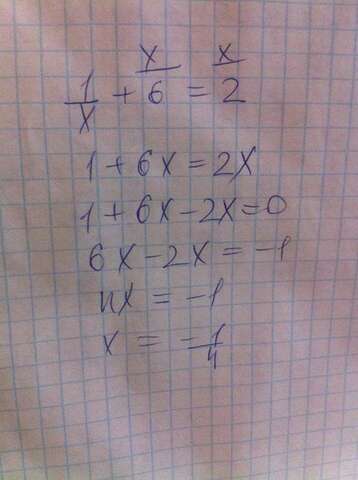 x x
1/x + 6 = 2
1 + 6x = 2x
1 + 6x - 2x = 0
6x - 2x = -1
4x = -1
x = -1/4